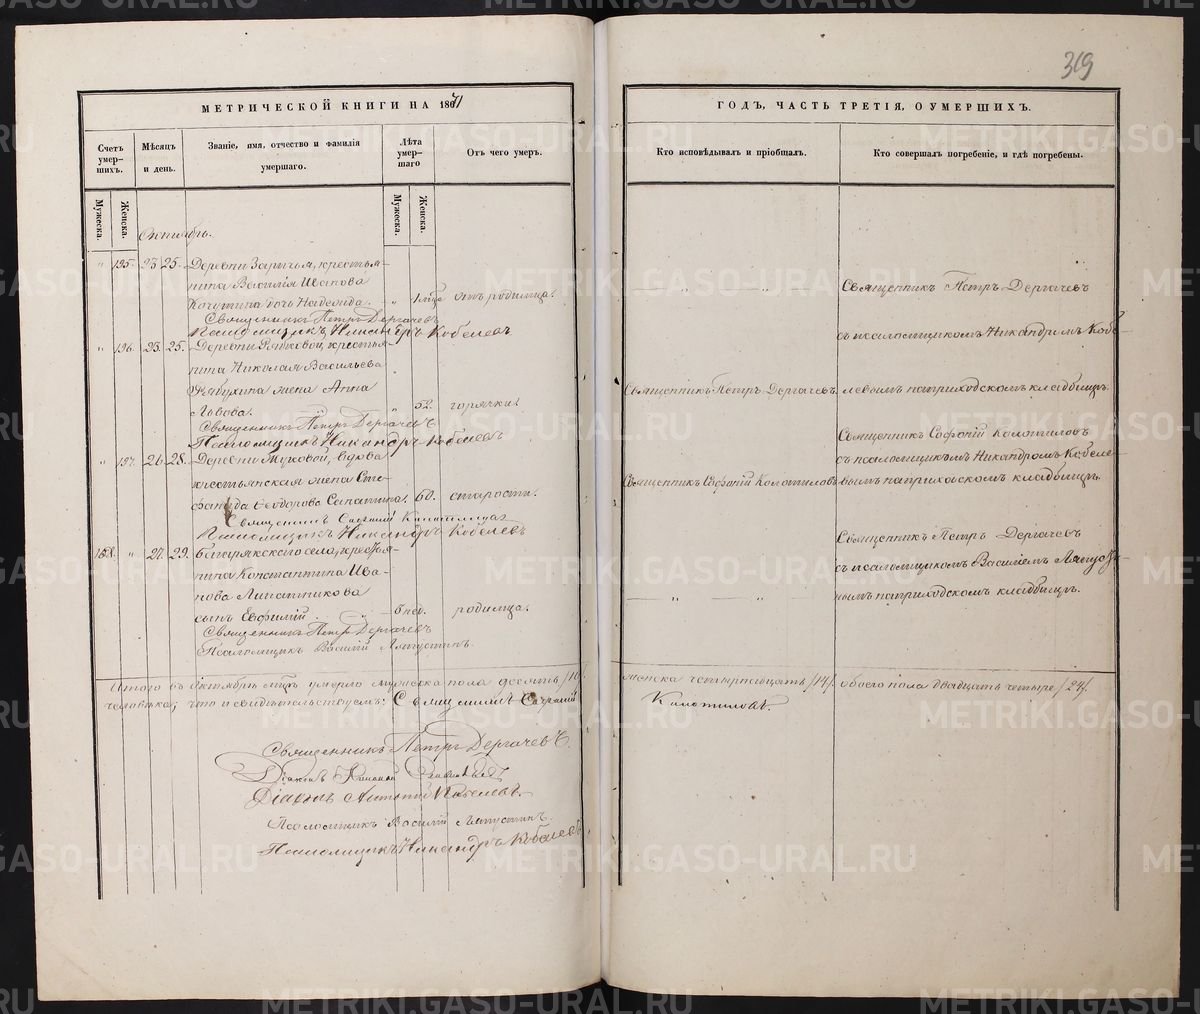 319
МЕТРИЧЕСКОЙ КНИГИ НА 1871
ГОДЪ, ЧАСТЬ ТРЕТІЯ, О УМЕРШИХЪ.
Счетъ умершихъ.
Мѣсяцъ и день.
Званіе, имя, отчество и фамилія умершаго.
Лѣта умершаго
Отъ чего умеръ.
Кто исповѣдывалъ и пріобщалъ.
Кто совершалъ погребеніе, и гдѣ погребены.
Мужеска.
Женска.
Мужеска.
Женска.
Октябрь.
" 195. 23 25. Деревни крестья-
нина Василія Иванова
дочь Надежда. " отъ родимца.
Священникъ Петръ Дергачевъ
Псаломщикъ Никандръ Кобелевъ
Священникъ Петръ Дергачевъ
съ псаломщикомъ Никандромъ Кобе-
" 196. 23. 25. Деревни крестья-
нина Николая Васильева
жена Анна
Львова. " 52. горячки.
Священникъ Петръ Дергачевъ
Псаломщикъ Никандръ Кобелевъ
Священникъ Петръ Дергачевъ.
левымъ на приходскомъ кладбищѣ.
" 197. 26. 28. Деревни вдова
крестьянская жена Сте-
фанида Ѳеодорова 60. старости.
Священникъ
Псаломщикъ Никандръ Кобелевъ
Священникъ Колотиловъ
Священникъ Колотиловъ
съ псаломщикомъ Никандромъ Кобеле-
вымъ на приходскомъ кладбищѣ.
" 27. 29. села, крестья-
нина Константина Ива-
нова Липатникова
сынъ Евфимій 6 нед. родимца.
Священникъ Петръ Дергачевъ
Псаломщикъ Василій Ляпустинъ.
Священникъ Петръ Дергачевъ
съ псаломщикомъ Василіемъ Ляпусти-
нымъ на приходскомъ кладбищѣ.
Итого въ Октябрѣ м-цѣ умерло мужеска пола десять /10/
женска четырнадцать /14/. обоего пола двадцать четыре /24/.
человѣка; что и свидѣтельствуемъ: Священникъ
Колотиловъ.
Священникъ Петръ Дергачевъ.
Діаконъ
Діаконъ Антоній Кобелевъ.
Псаломщикъ Василій Ляпустинъ.
Псаломщикъ Никандръ Кобелевъ
METRIKI.GASO-URAL.RU